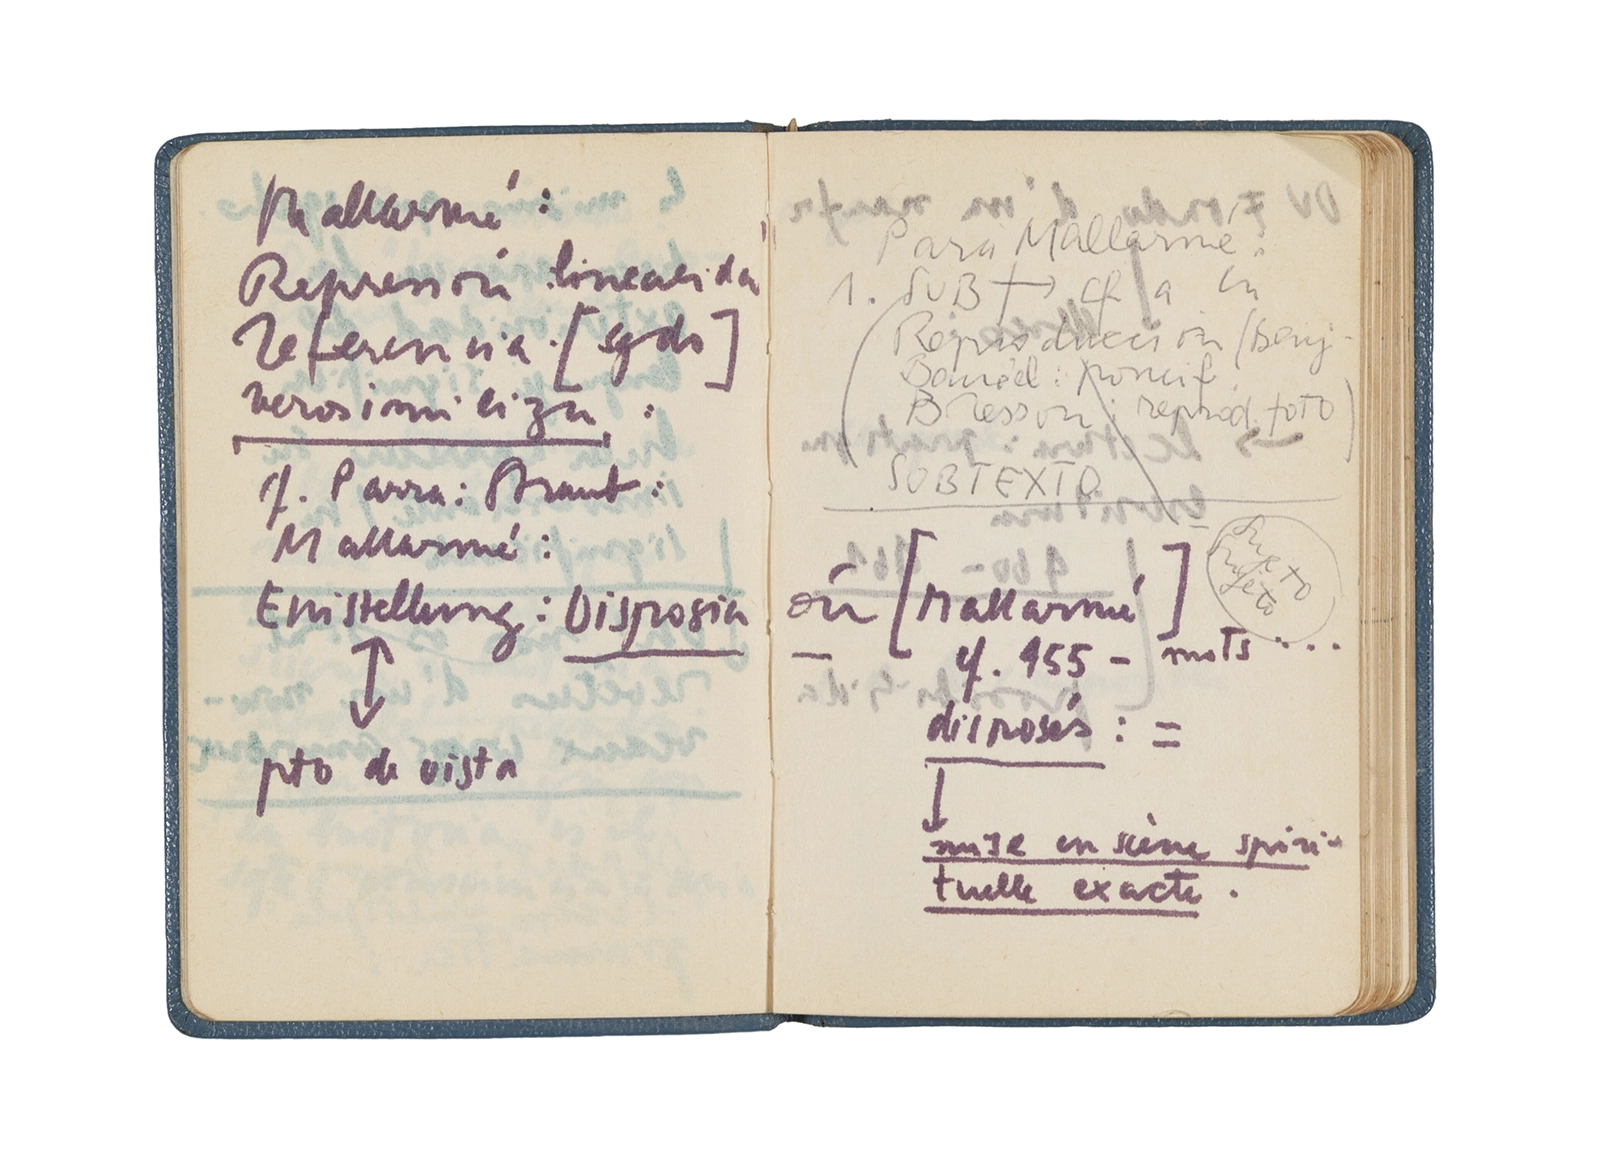 Mallarmé:
Represión: linealida
referencia. [sgdo]
verosimiliza :
cf. Parra: Braut:
Mallarmé:
Einstellung: Disposia
pto de vista
Para Mallarmé:
1. SUB → cf a la
(Reproducción (Benj-
Baudel: poncif
Bresson: reprod. foto)
SUBTEXTO
Sujeto
Sujeto
ón [Mallarmé]
cf. 455 - mots ...
disposés : =
mise en scène spiri-
tuelle exacte.